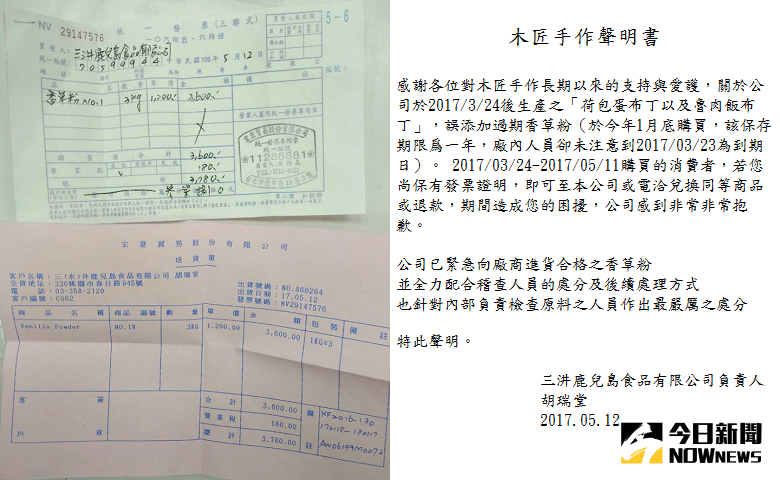 NV 29147576
統一發票(三聯式)
5-6
一〇六年五、六月份
買受人：三汫鹿兒島食品有限公司
統一編號：
中華民國106年5月12日
品名
數量
單價
金額
備註
香草粉 NO.1
3kg
1,200.
3,600.
營業人蓋用統一發票專用章
統一發票專用章
11285581
銷售額合計
3,600.
180.
總計
3,780.
宏意貿易股份有限公司
送貨單
客戶名稱：三(水)井鹿兒島食品有限公司 胡瑞堂
交貨地址：330桃園市春日路945號
電話：03-358-2120
客戶編號：C062
出貨號碼：NO.860264
出貨日期：17.05.12
發票號碼：NV29147576
商品名稱 商品編號 數量 單價 金額 包裝 備註
Vanilla Powder NO.1V 3KG 1,200.00 3,600.00 1KG*3
客簽
戶章
合計 3,600.00
營業稅 180.00
總計 3,780.00
備註
木匠手作聲明書
感謝各位對木匠手作長期以來的支持與愛護，關於公
司於2017/3/24後生產之「荷包蛋布丁以及魯肉飯布
丁」，誤添加過期香草粉（於今年1月底購買，該保存
期限為一年，廠內人員卻未注意到2017/03/23為到期
日）。 2017/03/24-2017/05/11購買的消費者，若您
尚保有發票證明，即可至本公司或電洽兌換同等商品
或退款，期間造成您的困擾，公司感到非常非常抱
歉。
公司已緊急向廠商進貨合格之香草粉
並全力配合稽查人員的處分及後續處理方式
也針對內部負責檢查原料之人員作出最嚴厲之處分
特此聲明。
三汫鹿兒島食品有限公司負責人
胡瑞堂
2017.05.12
今日新聞
NOWNEWS